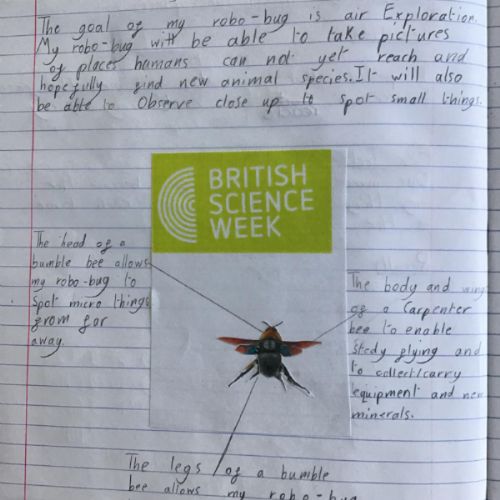 The goal of my robo-bug is air Exploration.
My robo-bug will be able to take pictures
of places humans can not yet reach and
hopefully find new animal species. It will also
be able to Observe close up to spot small things.
BRITISH
SCIENCE
WEEK
The head of a
bumble bee allows
my robo-bug to
Spot micro things
from far
away.
The body and wing
of a Carpenter
bee to enable
Stedy flying and
to collect/carry
equipment and new
minerals.
The legs of a bumble
bee allows my robo-bug